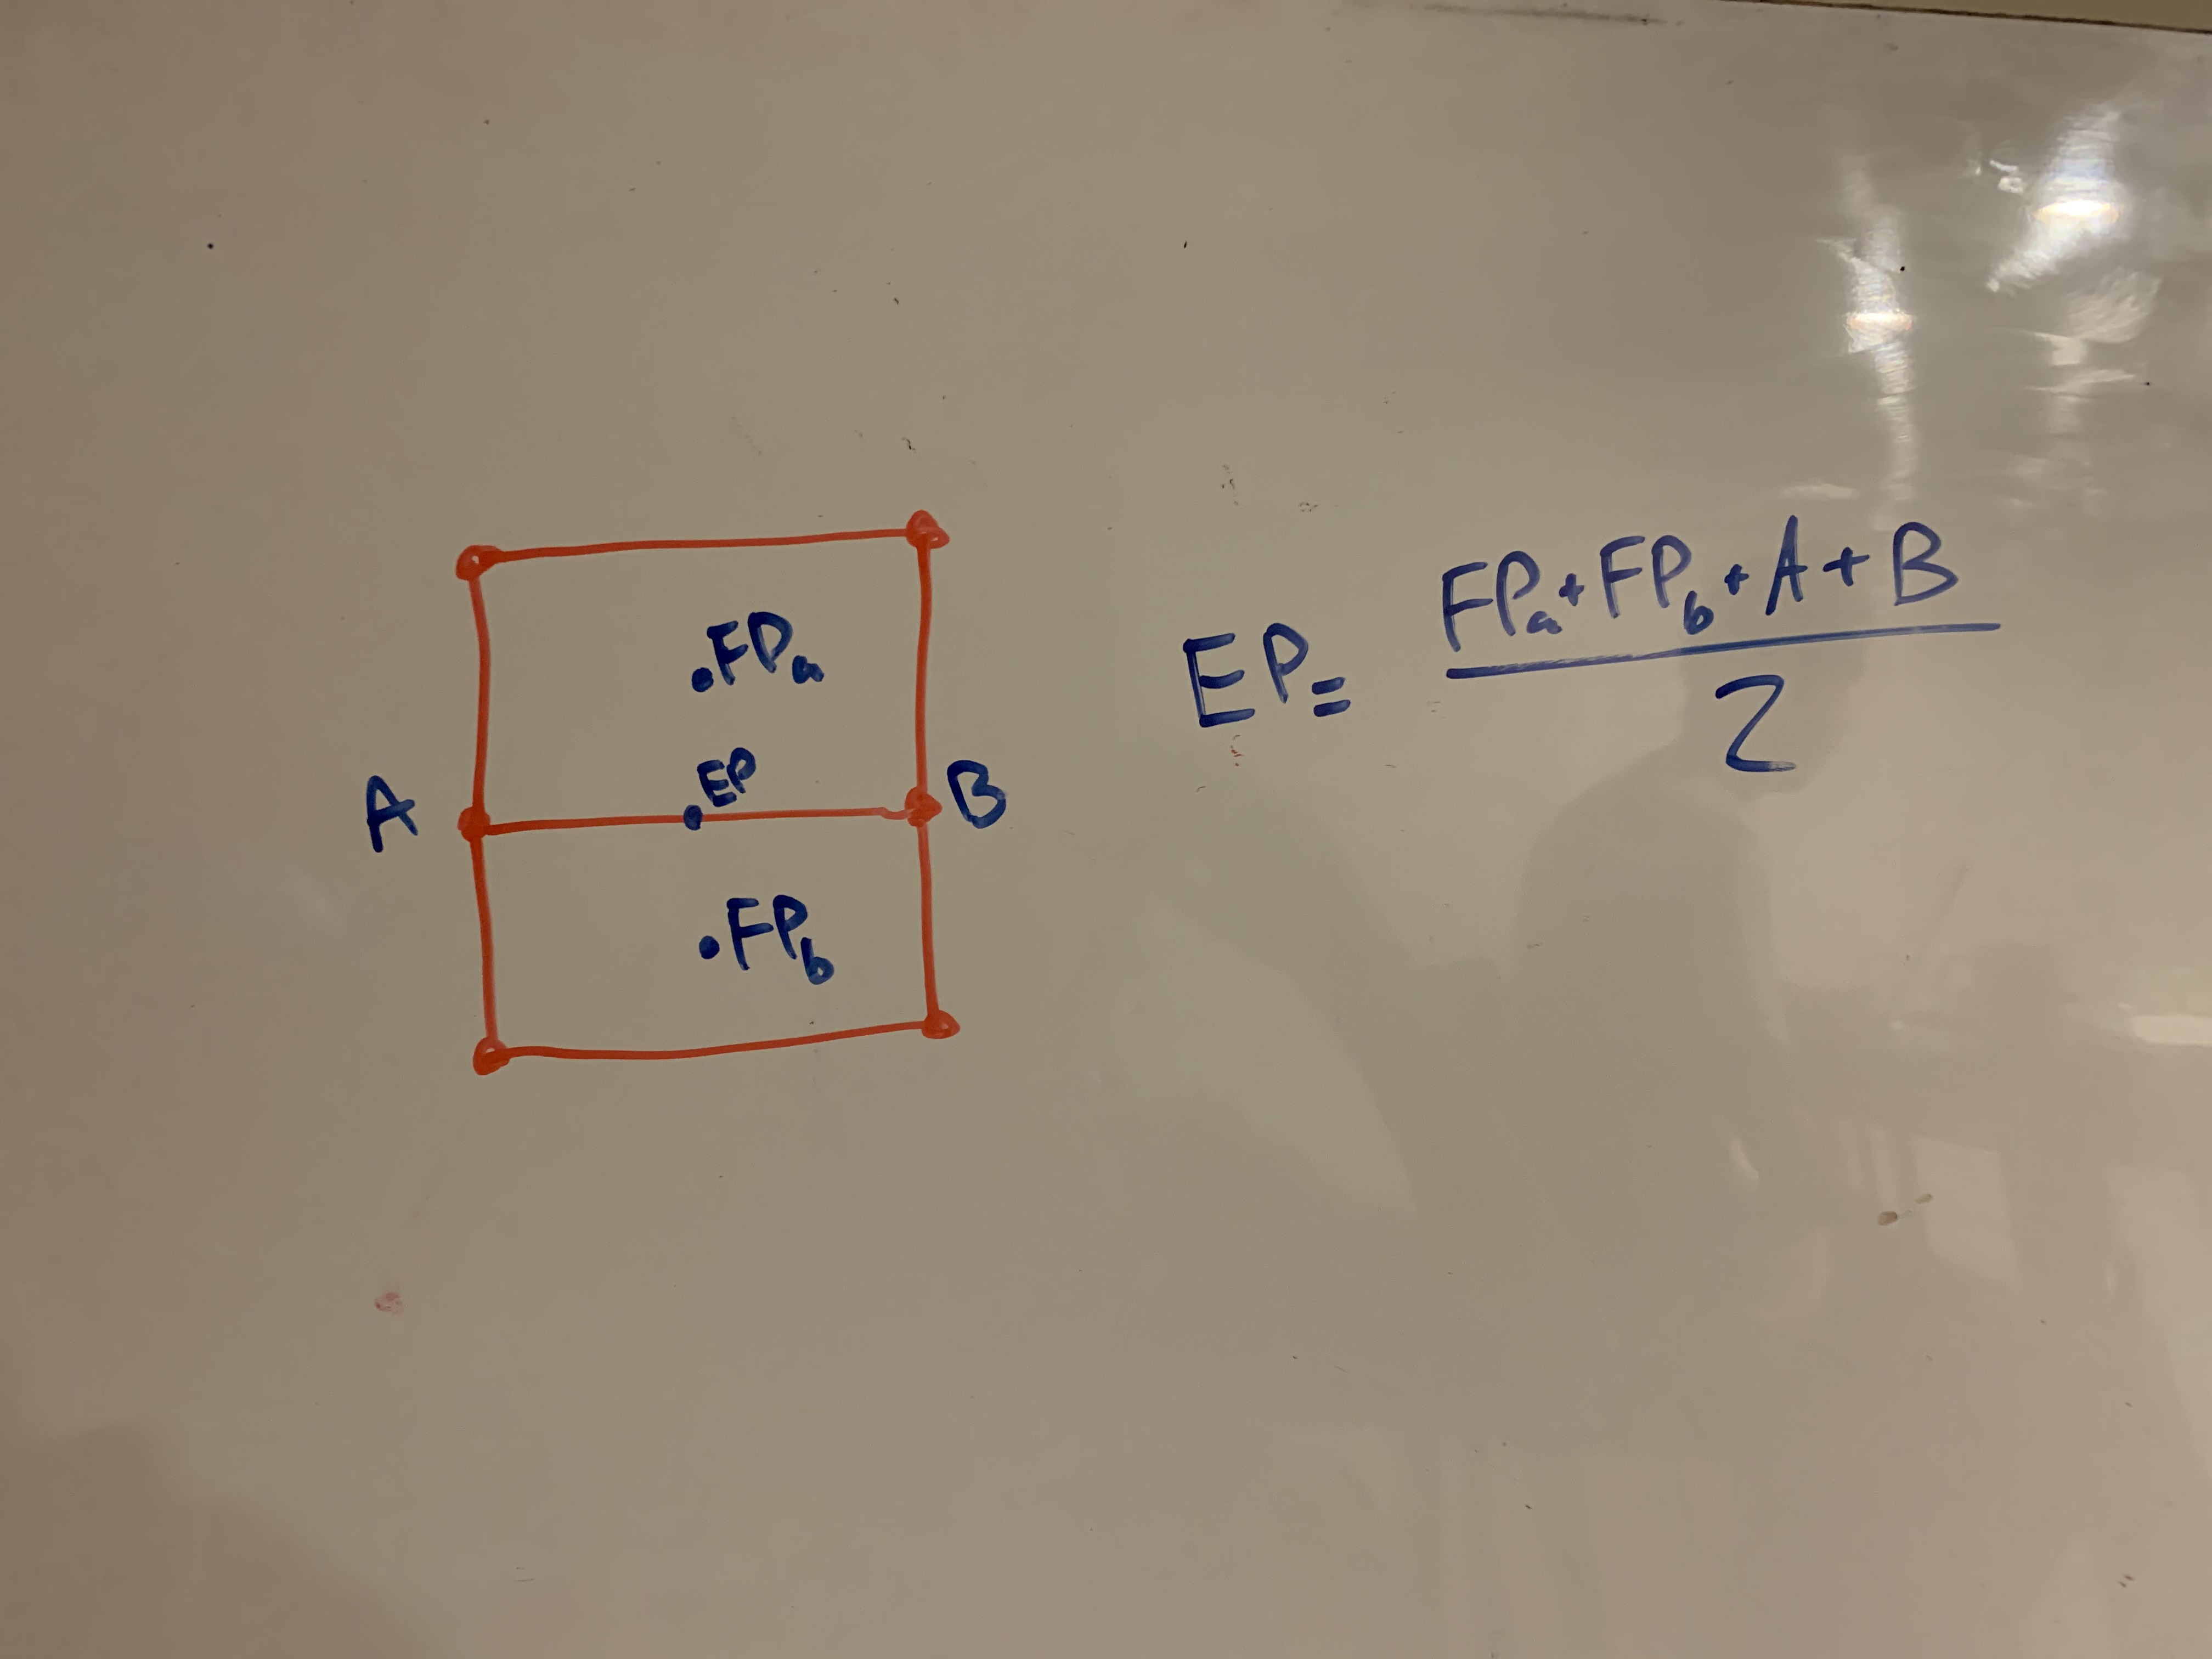 FPa
EP
A
B
FPb
EP = FPa + FPb + A + B
2